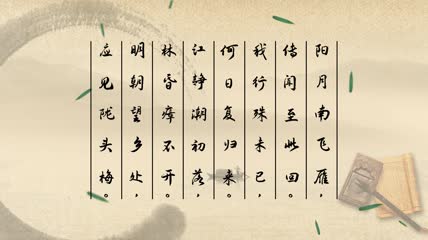 阳月南飞雁，
传闻至此回。
我行殊未已，
何日复归来。
江静潮初落，
林昏瘴不开。
明朝望乡处，
应见陇头梅。